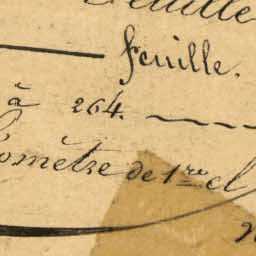 feuille.
à 264.
omètre de 1re cl